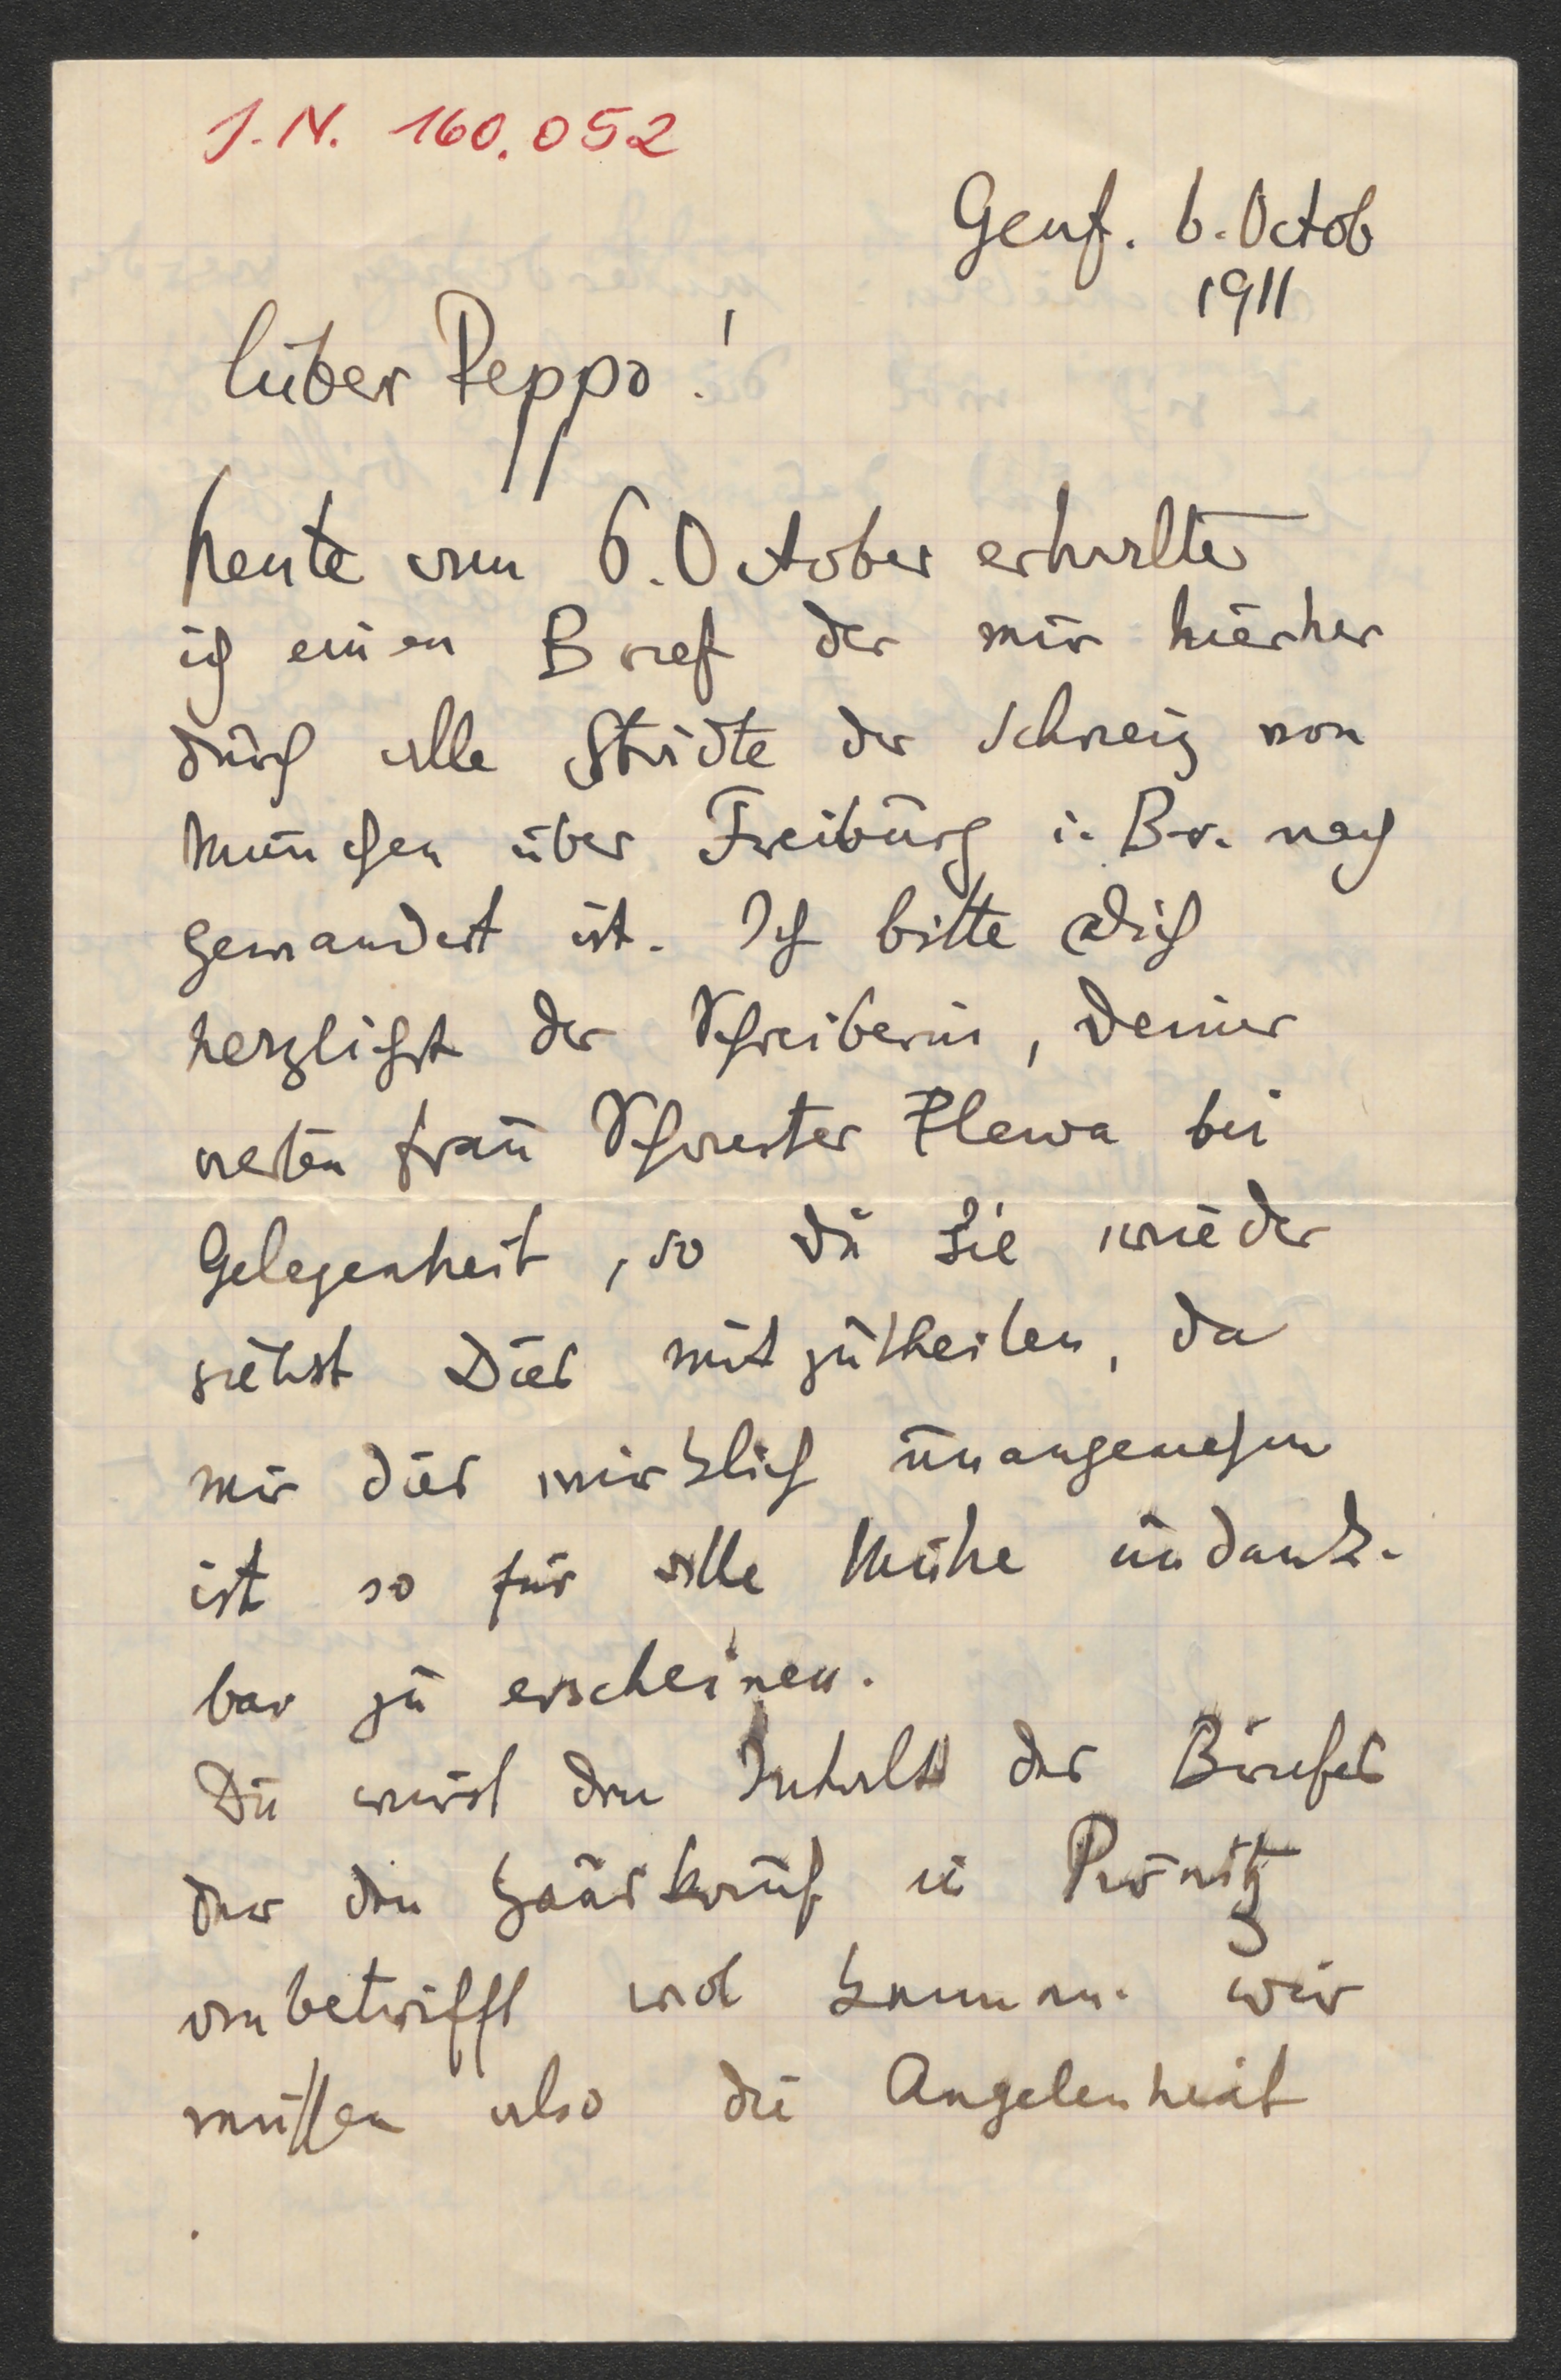 J.N. 160.052
Genf. 6. Octob
1911
Lieber Peppo!
heute am 6. October erhalte
ich einen Brief der mir hierher
durch alle Städte der Schweiz von
München über Freiburg i. Br. nach
gewandert ist. Ich bitte Dich
herzlichst der Schreiberin, Deiner
werten Frau Schwester Plewa bei
Gelegenheit, so du sie wieder
siehst Dies mitzutheilen, da
mir dies wirklich unangenehm
ist so für alle Mühe undank-
bar zu erscheinen.
Du wirst den Inhalt des Briefes
der den in
anbetrifft wol kennen. wir
müssen also die Angelenheit